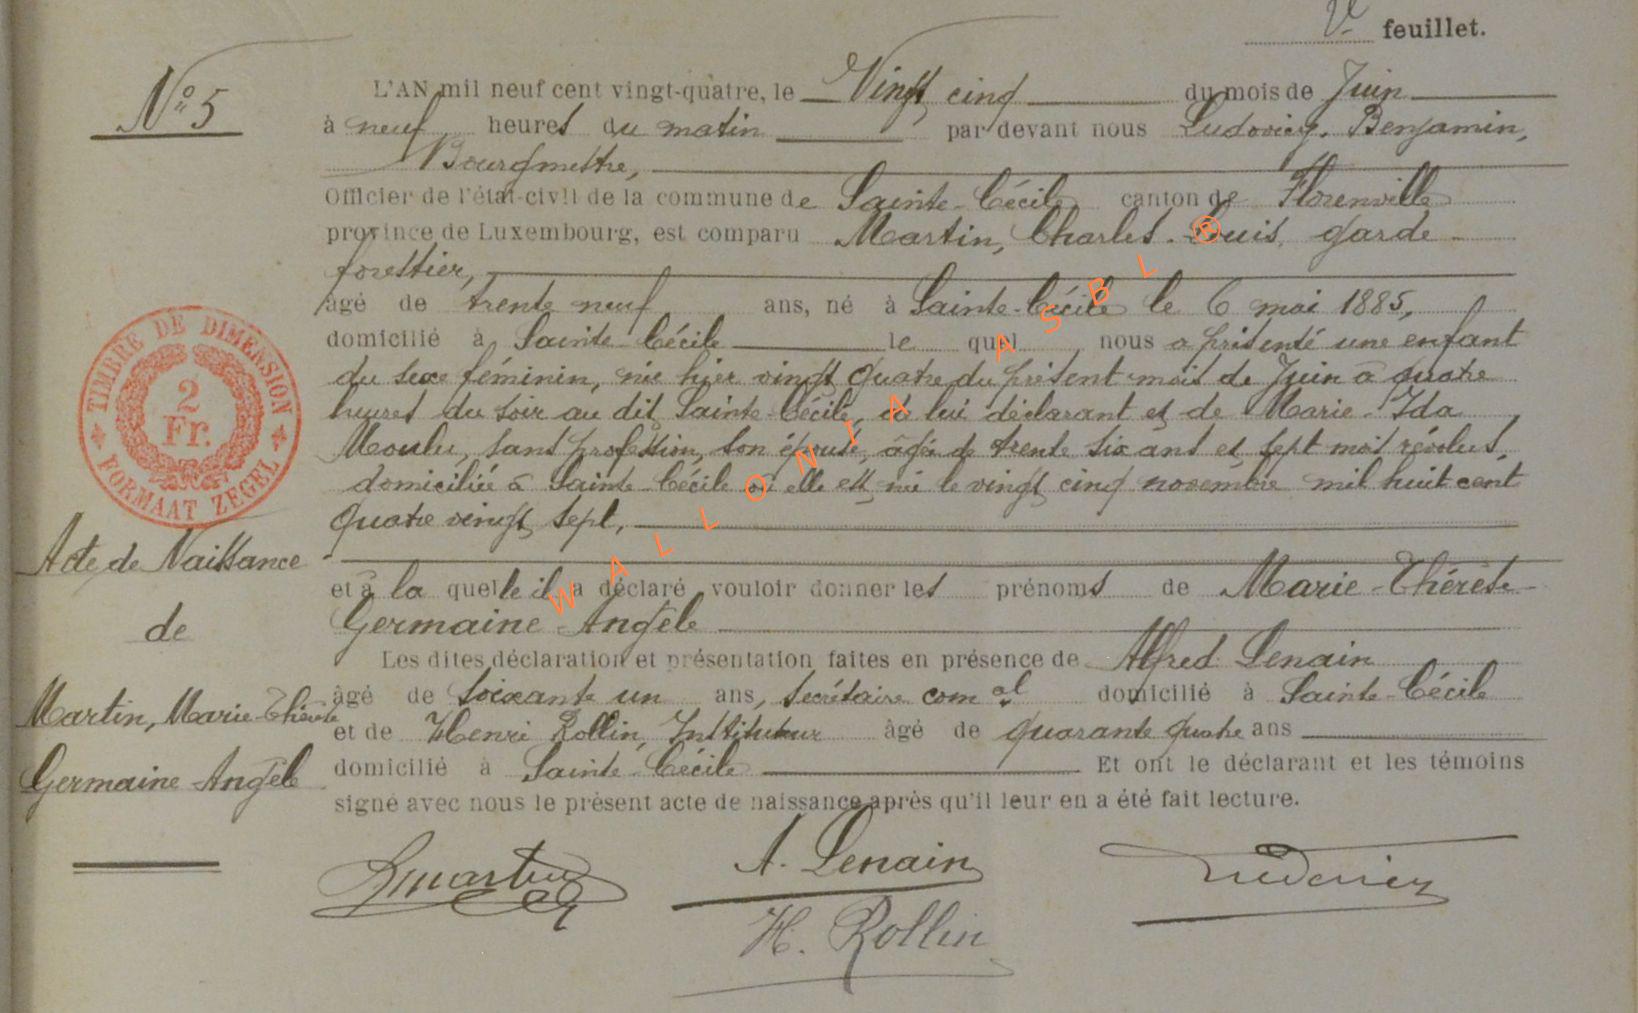 Ve feuillet.
N° 5
L'AN mil neuf cent vingt-quatre, le Vingt cinq du mois de Juin
à neuf heures du matin par devant nous Ludovicy, Benjamin,
Bourgmestre,
Officier de l'état-civil de la commune de Sainte-Cécile canton de Florenville
province de Luxembourg, est comparu Martin, Charles-Louis, garde
forestier,
âgé de trente neuf ans, né à Sainte-Cécile le 6 mai 1885,
domicilié à Sainte-Cécile le quel nous a présenté une enfant
du sexe féminin, née hier vingt quatre du présent mois de Juin à quatre
heures du soir au dit Sainte-Cécile, de lui déclarant et de Marie-Ida
Moulu, sans profession, son épouse, âgée de trente six ans et sept mois révolus,
domiciliée à Sainte-Cécile où elle est née le vingt cinq novembre mil huit cent
quatre vingt sept,
et à la quelle il a déclaré vouloir donner les prénoms de Marie-Thérèse-
Germaine-Angèle
Les dites déclaration et présentation faites en présence de Alfred Lenain
âgé de soixante un ans, secrétaire comal domicilié à Sainte-Cécile
et de Henri Rollin, Instituteur âgé de quarante quatre ans
domicilié à Sainte-Cécile Et ont le déclarant et les témoins
signé avec nous le présent acte de naissance après qu'il leur en a été fait lecture.
TIMBRE DE DIMENSION
2
Fr.
FORMAAT ZEGEL
Acte de Naissance
de
Martin, Marie-Thérèse
Germaine-Angèle
Lmartin
A. Lenain
Ludovicy
H. Rollin
WALLONIA ASBL ®